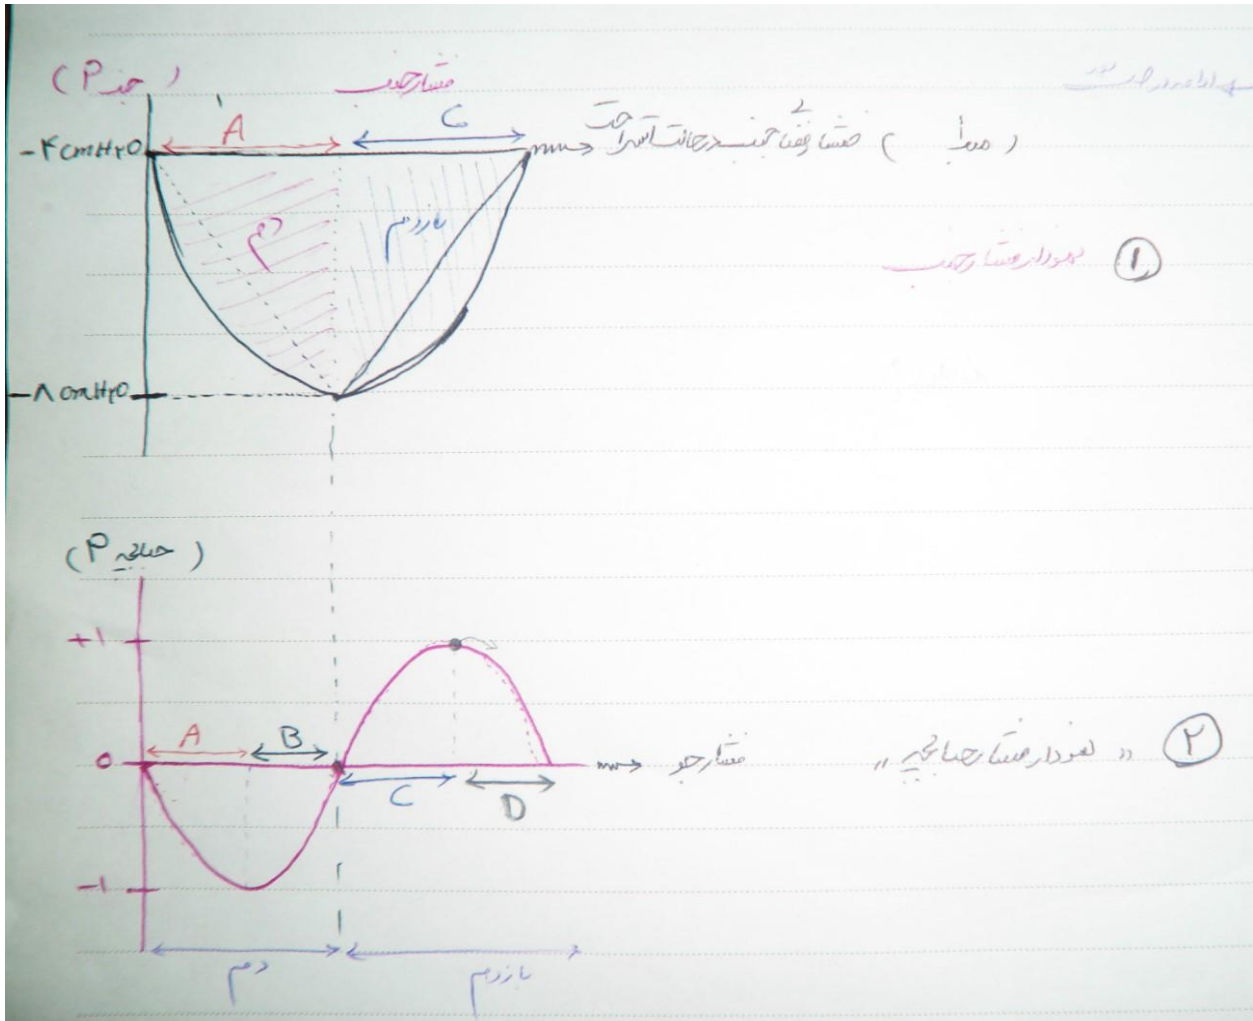 (P جنب)
فشار جنب
A
C
-۴ cmH۲O
(مبدأ) فشار فضای جنب در حالت استراحت
دم
بازدم
نمودار فشار جنب ①
-۸ cmH۲O
(P حبابچه)
+۱
A
B
0
فشار جو
"نمودار فشار حبابچه" ②
C
D
-۱
دم
بازدم